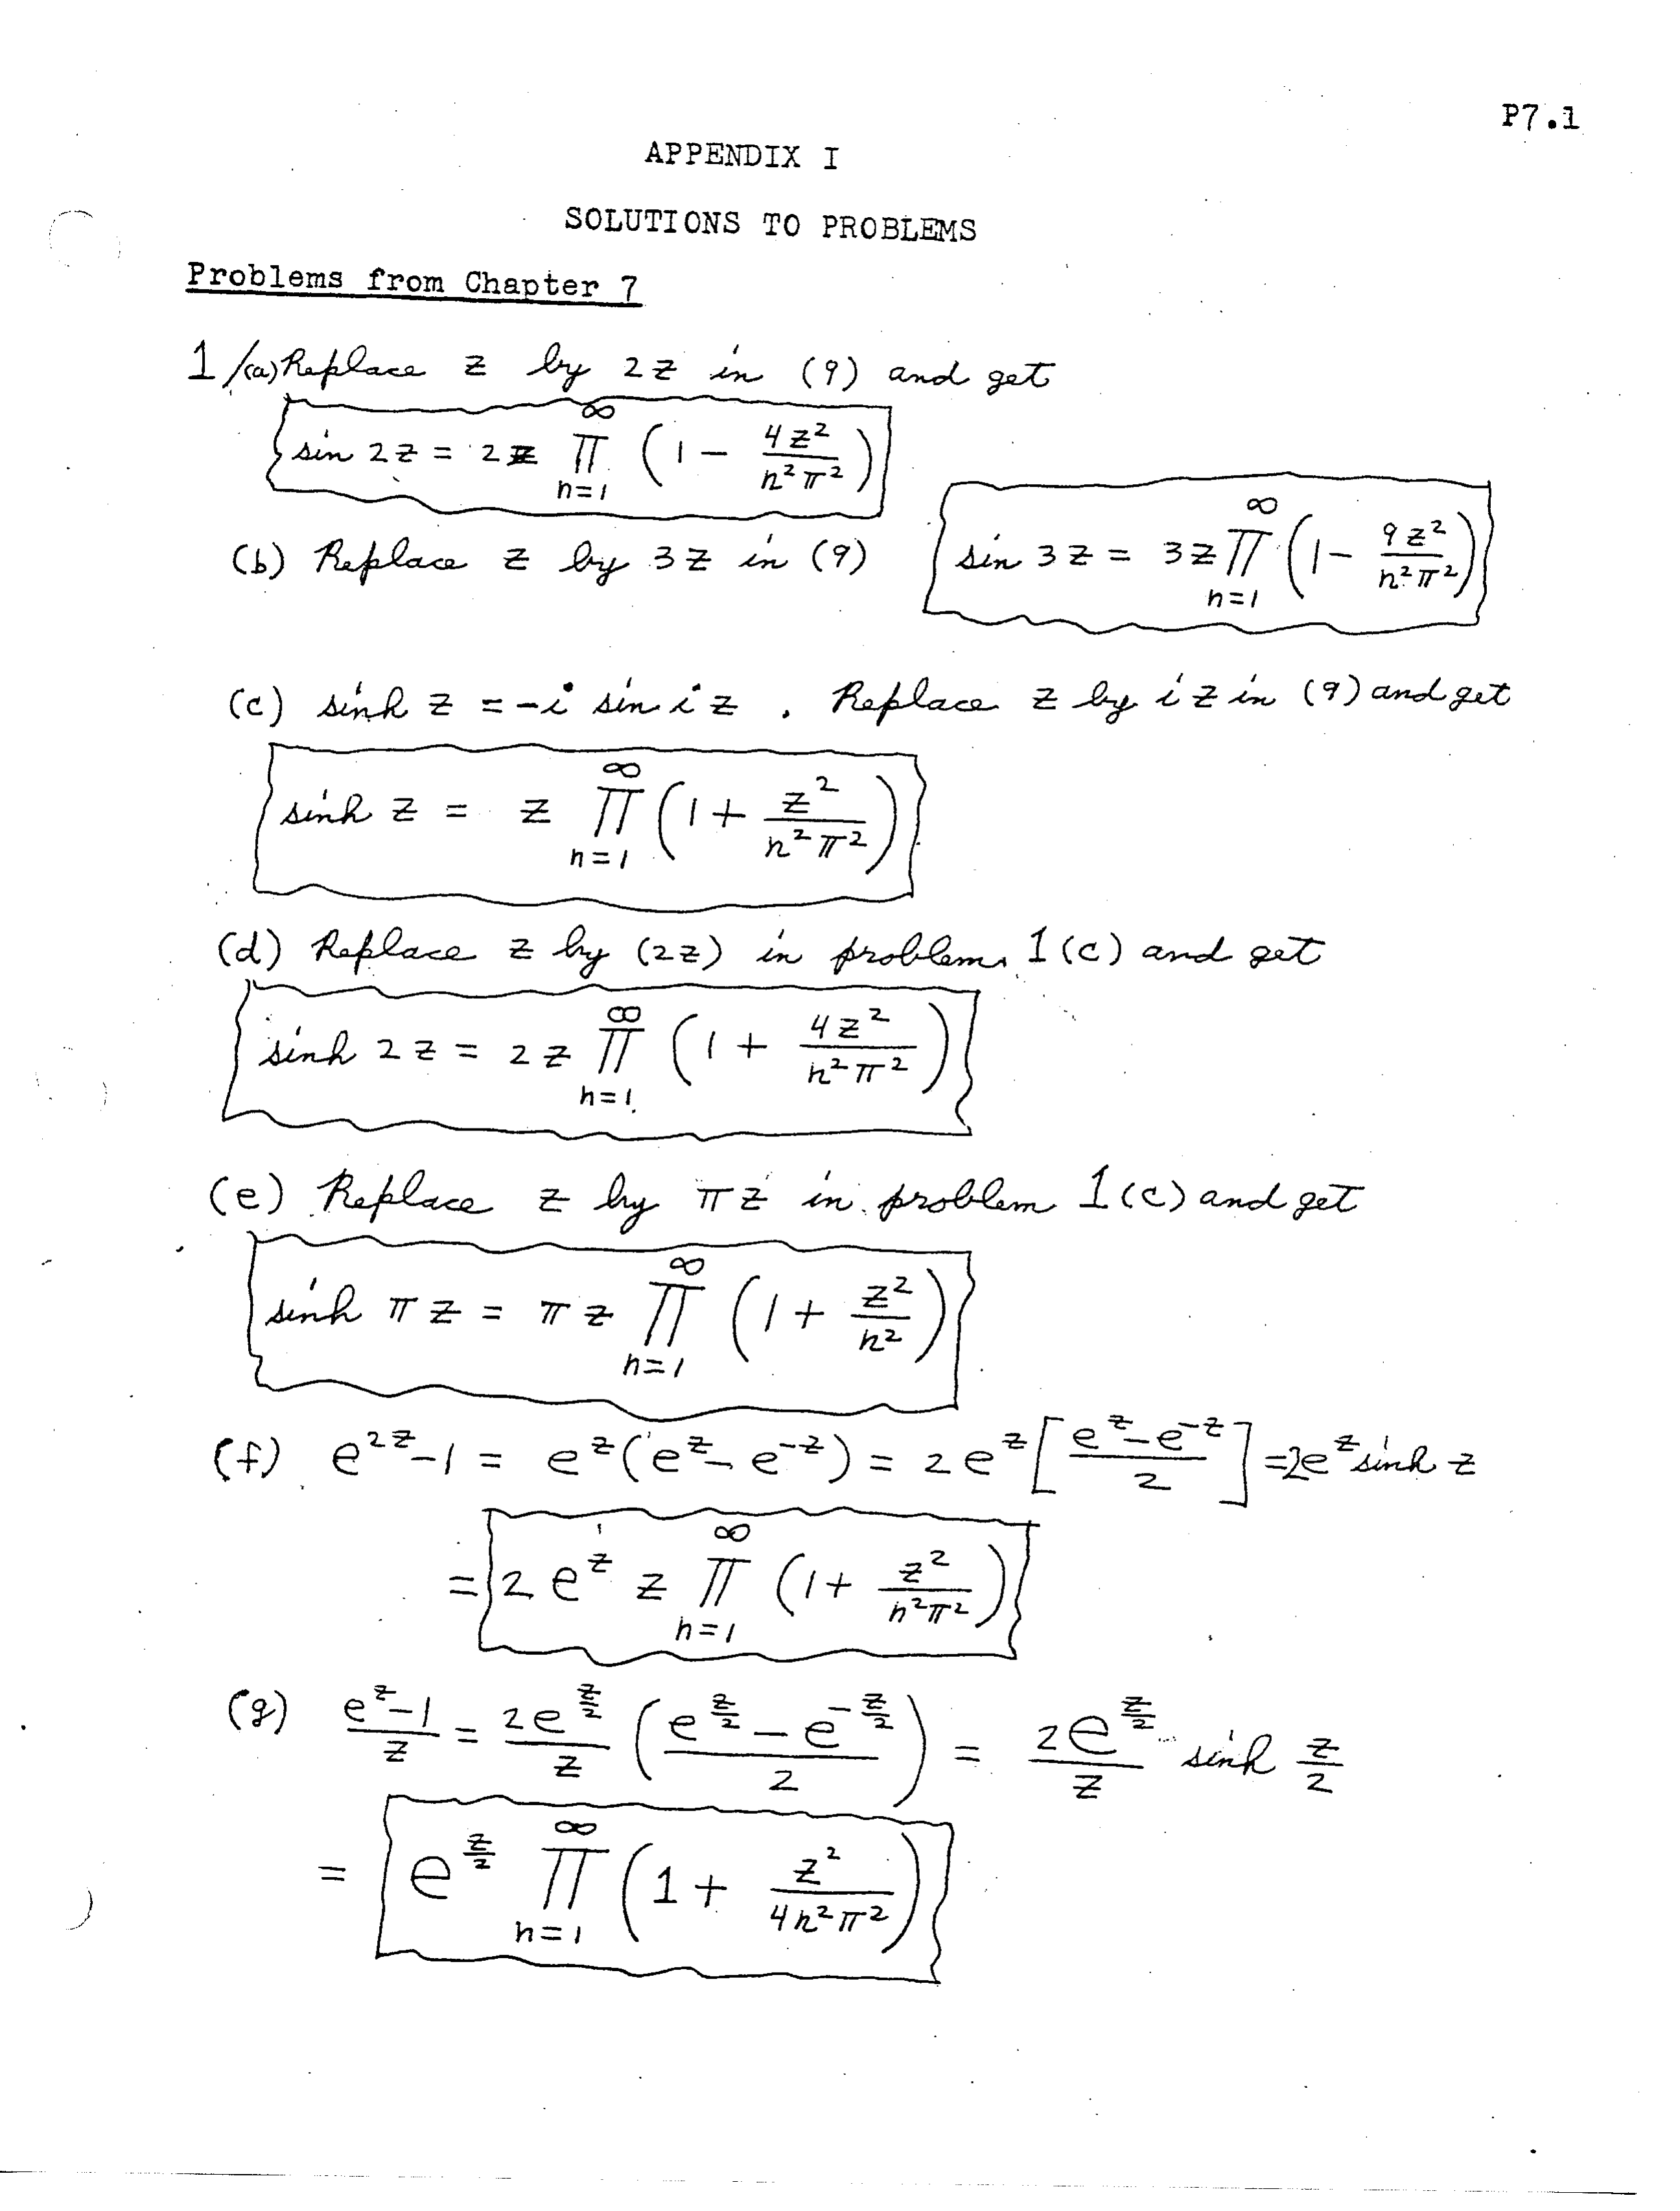 P7.1
APPENDIX I
SOLUTIONS TO PROBLEMS
Problems from Chapter 7
1/(a) Replace z by 2z in (9) and get
sin 2z = 2z ∏_{n=1}^{∞} (1 - \frac{4z^2}{n^2π^2})
(b) Replace z by 3z in (9) sin 3z = 3z ∏_{n=1}^{∞} (1 - \frac{9z^2}{n^2π^2})
(c) sinh z = -i sin i z . Replace z by i z in (9) and get
sinh z = z ∏_{n=1}^{∞} (1 + \frac{z^2}{n^2π^2})
(d) Replace z by (2z) in problem 1(c) and get
sinh 2z = 2z ∏_{n=1}^{∞} (1 + \frac{4z^2}{n^2π^2})
(e) Replace z by πz in problem 1(c) and get
sinh πz = πz ∏_{n=1}^{∞} (1 + \frac{z^2}{n^2})
(f) e^{2z} - 1 = e^z (e^z - e^{-z}) = 2e^z [\frac{e^z - e^{-z}}{2}] = 2e^z sinh z
= 2 e^z z ∏_{n=1}^{∞} (1 + \frac{z^2}{n^2π^2})
(g) \frac{e^z - 1}{z} = \frac{2e^{\frac{z}{2}}}{z} (\frac{e^{\frac{z}{2}} - e^{-\frac{z}{2}}}{2}) = \frac{2e^{\frac{z}{2}}}{z} sinh \frac{z}{2}
= e^{\frac{z}{2}} ∏_{n=1}^{∞} (1 + \frac{z^2}{4n^2π^2})